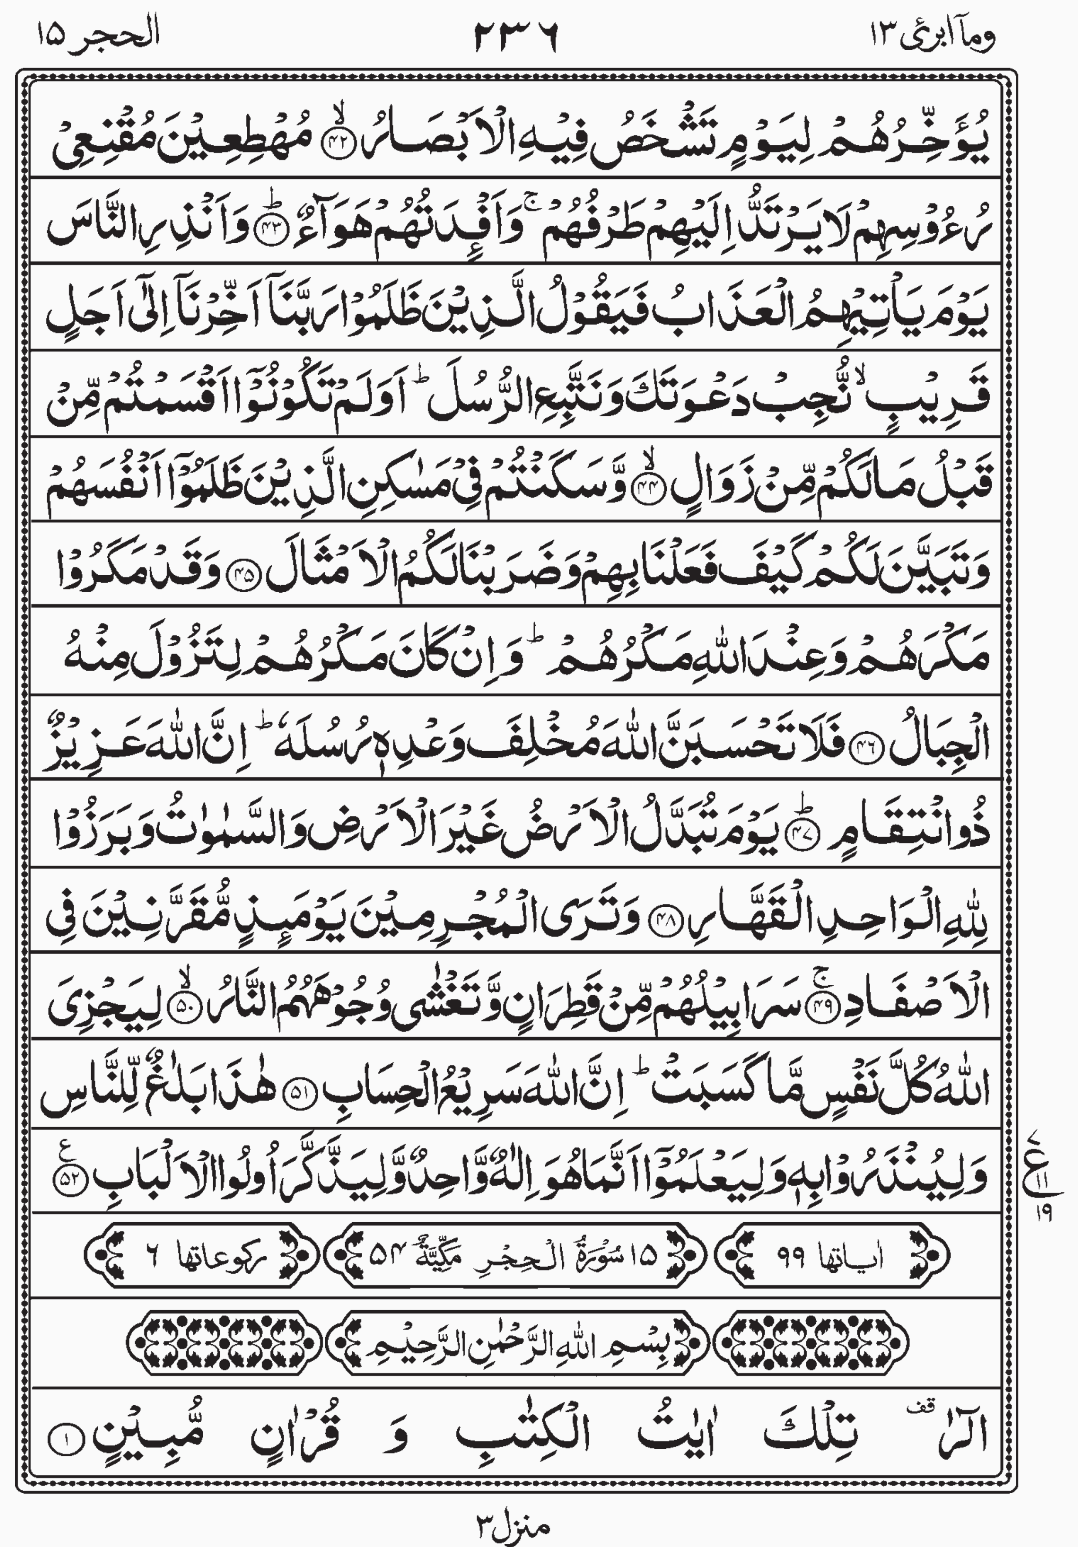 ومآ ابرئ ۱۳
۲۳۶
الحجر ۱۵
يُؤَخِّرُهُمْ لِيَوْمٍ تَشْخَصُ فِيْهِ الْاَبْصَارُ ۙ‏﴿۴۲﴾ مُهْطِعِيْنَ مُقْنِعِىْ
رُءُوْسِهِمْ لَا يَرْتَدُّ اِلَيْهِمْ طَرْفُهُمْ ۚ وَاَفْـِٕدَتُهُمْ هَوَآءٌ ؕ‏﴿۴۳﴾ وَاَنْذِرِ النَّاسَ
يَوْمَ يَاْتِيْهِمُ الْعَذَابُ فَيَقُوْلُ الَّذِيْنَ ظَلَمُوْا رَبَّنَاۤ اَخِّرْنَاۤ اِلٰٓى اَجَلٍ
قَرِيْبٍ ۙ نُّجِبْ دَعْوَتَكَ وَنَتَّبِعِ الرُّسُلَ ؕ اَوَلَمْ تَكُوْنُوْۤا اَقْسَمْتُمْ مِّنْ
قَبْلُ مَا لَكُمْ مِّنْ زَوَالٍ ۙ‏﴿۴۴﴾ وَّسَكَنْتُمْ فِىْ مَسٰكِنِ الَّذِيْنَ ظَلَمُوْۤا اَنْفُسَهُمْ
وَتَبَيَّنَ لَكُمْ كَيْفَ فَعَلْنَا بِهِمْ وَضَرَبْنَا لَكُمُ الْاَمْثَالَ‏﴿۴۵﴾ وَقَدْ مَكَرُوْا
مَكْرَهُمْ وَعِنْدَ اللّٰهِ مَكْرُهُمْ ؕ وَاِنْ كَانَ مَكْرُهُمْ لِتَزُوْلَ مِنْهُ
الْجِبَالُ‏﴿۴۶﴾ فَلَا تَحْسَبَنَّ اللّٰهَ مُخْلِفَ وَعْدِهٖ رُسُلَهٗ ؕ اِنَّ اللّٰهَ عَزِيْزٌ
ذُو انْتِقَامٍ ؕ‏﴿۴۷﴾ يَوْمَ تُبَدَّلُ الْاَرْضُ غَيْرَ الْاَرْضِ وَالسَّمٰوٰتُ وَبَرَزُوْا
لِلّٰهِ الْوَاحِدِ الْقَهَّارِ‏﴿۴۸﴾ وَتَرَى الْمُجْرِمِيْنَ يَوْمَٮِٕذٍ مُّقَرَّنِيْنَ فِى
الْاَصْفَادِ ۚ‏﴿۴۹﴾ سَرَابِيْلُهُمْ مِّنْ قَطِرَانٍ وَّتَغْشٰى وُجُوْهَهُمُ النَّارُ ۙ‏﴿۵۰﴾ لِيَجْزِىَ
اللّٰهُ كُلَّ نَفْسٍ مَّا كَسَبَتْ ؕ اِنَّ اللّٰهَ سَرِيْعُ الْحِسَابِ‏﴿۵۱﴾ هٰذَا بَلٰغٌ لِّلنَّاسِ
وَلِيُنْذَرُوْا بِهٖ وَلِيَعْلَمُوْۤا اَنَّمَا هُوَ اِلٰهٌ وَّاحِدٌ وَّلِيَذَّكَّرَ اُولُوا الْاَلْبَابِ‏﴿۵۲﴾ ع
۷
ع
۱۱
۱۹
اٰياتها ۹۹
۱۵ سُوْرَةُ الْحِجْرِ مَكِّيَّةٌ ۵۴
ركوعاتها ۶
بِسْمِ اللّٰهِ الرَّحْمٰنِ الرَّحِيْمِ
الٓرٰ قف تِلْكَ اٰيٰتُ الْكِتٰبِ وَ قُرْاٰنٍ مُّبِيْنٍ‏﴿۱﴾
منزل ۳